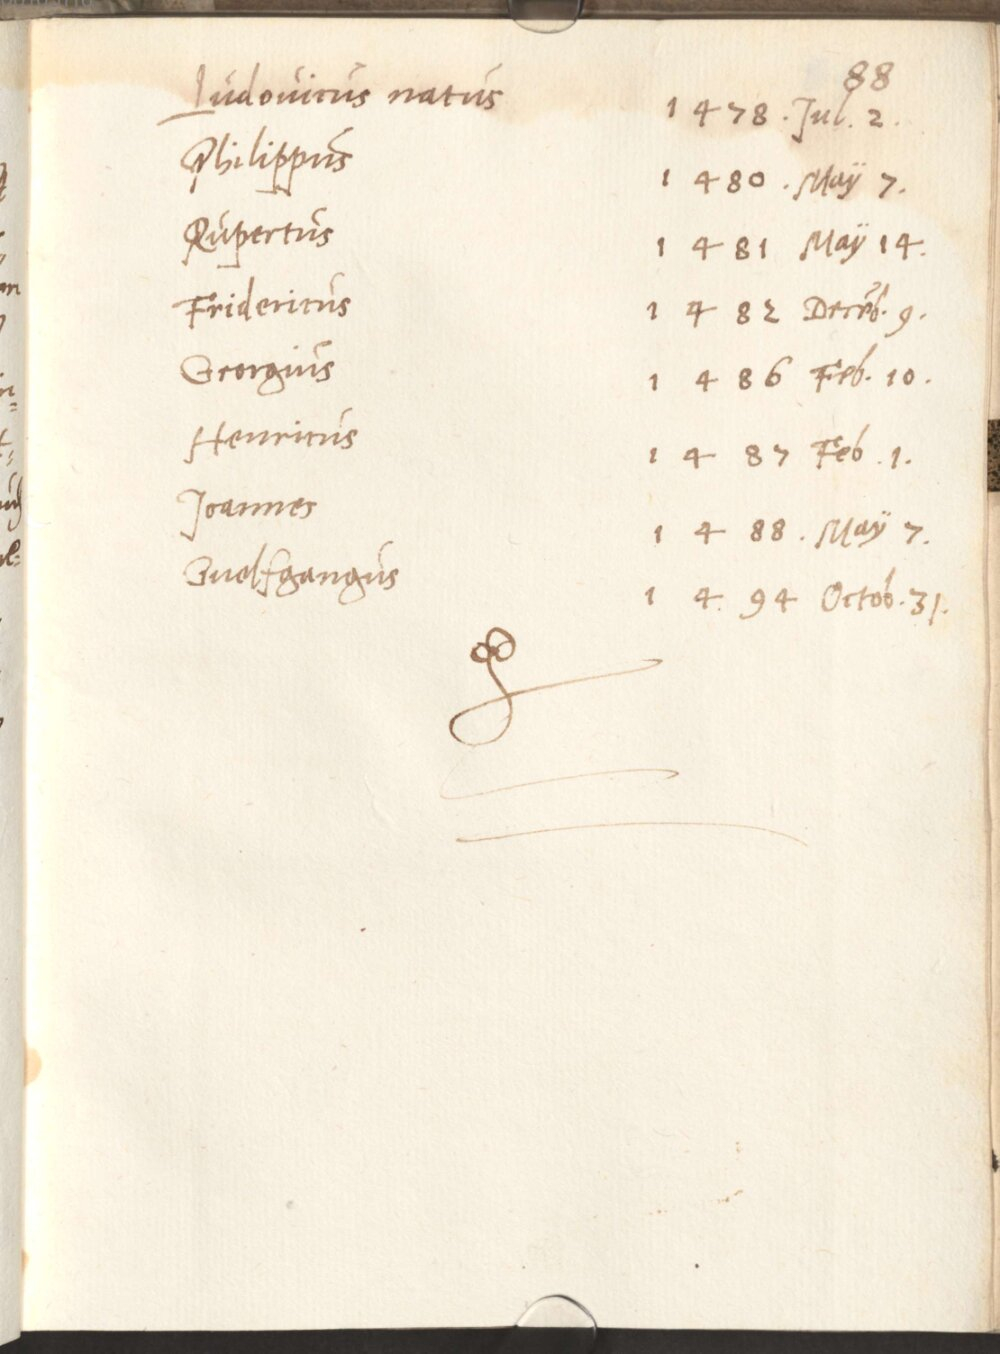 88
Ludouicus natus 1478. Jul. 2.
Philippus 1480. Maÿ 7.
Rupertus 1481 Maÿ 14.
Fridericus 1482 Decēb. 9.
Georgius 1486 Feb. 10.
Henricus 1487 Feb. 1.
Joannes 1488. Maÿ 7.
Vuolfgangus 1494 Octob. 31.